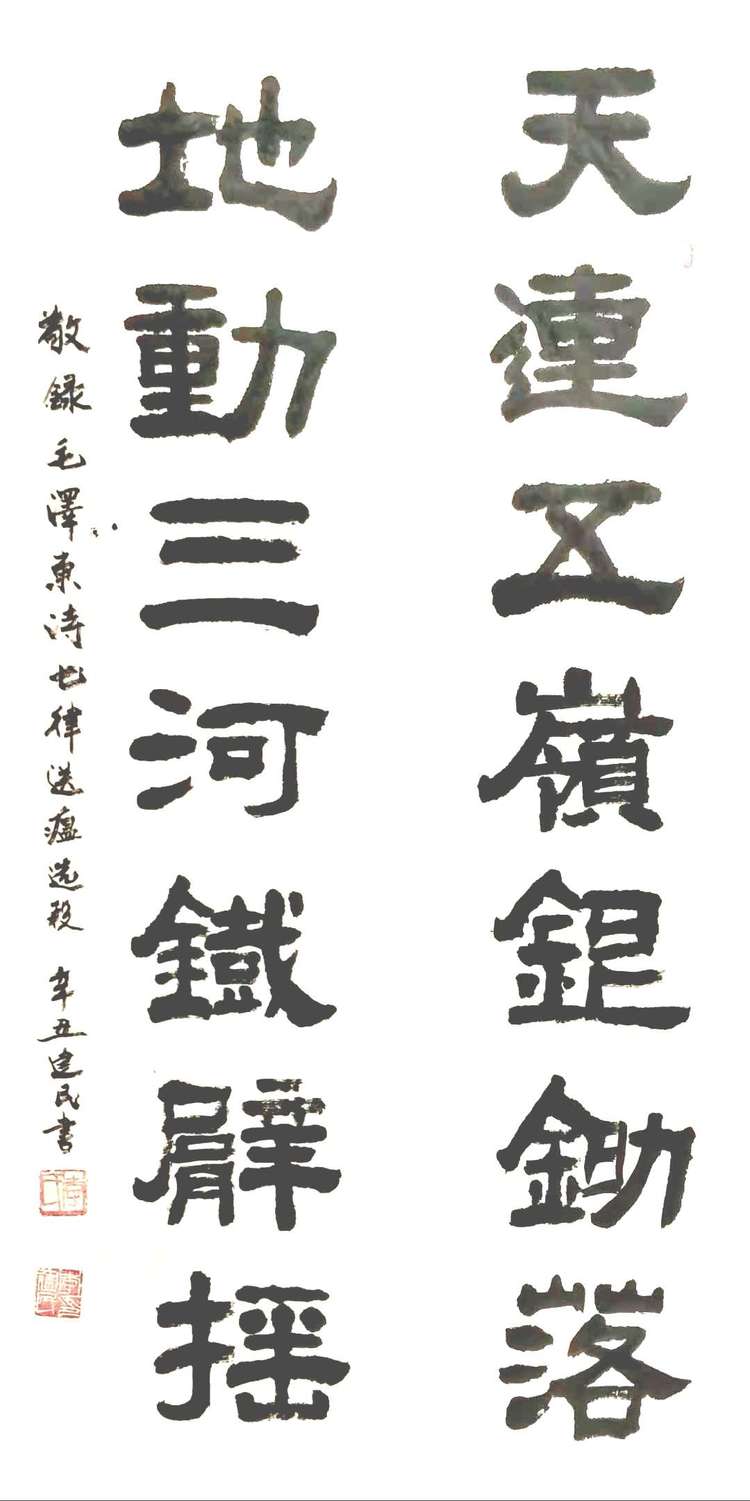 天連五嶺銀鋤落
地動三河鐵臂摇
敬録毛澤東詩七律送瘟選段 辛丑建民書